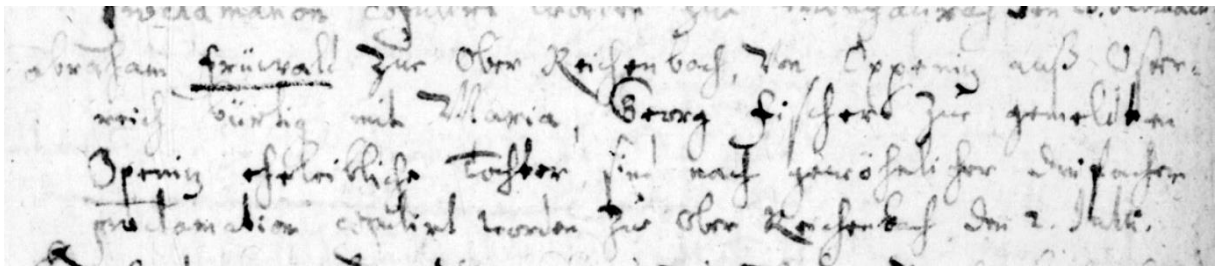 proclamation copulirt worden zue
Abraham Früwalt zue Ober Reichenbach, von Oppeniz auß Öster-
reich bürtig mit Maria, Georg Fischers zue gemelten
Oppeniz eheleibliche Tochter, sind nach gewöhnlicher dreifacher
proclamation copulirt worden zue Ober Reichenbach den 2. Julii.